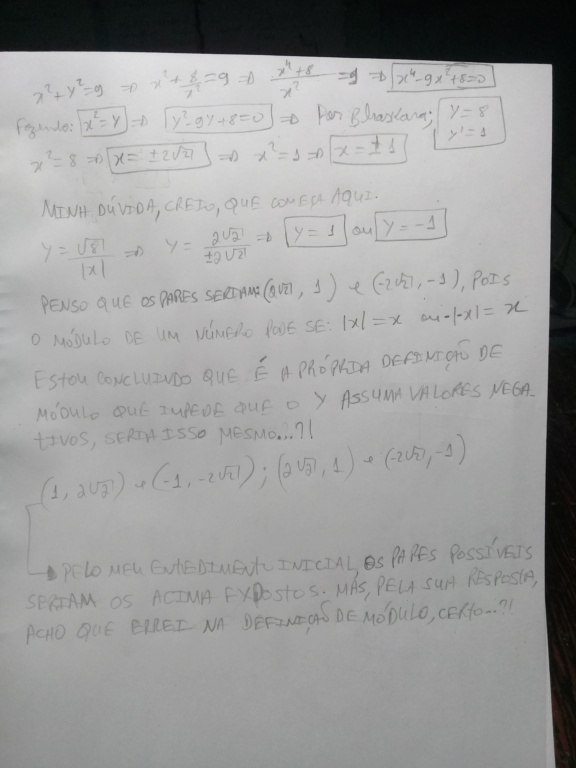 x² + y² = 9 ⇒ x² + 8/x² = 9 ⇒ (x⁴ + 8)/x² = 9 ⇒ x⁴ - 9x² + 8 = 0
Fazendo: x² = y ⇒ y² - 9y + 8 = 0 ⇒ Por Bhaskara; y = 8 y' = 1
x² = 8 ⇒ x = ±2√2 ⇒ x² = 1 ⇒ x = ±1
MINHA DÚVIDA, CREIO, QUE COMEÇA AQUI.
y = √8/|x| ⇒ y = 2√2/±2√2 ⇒ y = 1 ou y = -1
PENSO QUE OS PARES SERIAM: (2√2, 1) e (-2√2, -1), POIS
O MÓDULO DE UM NÚMERO PODE SE: |x| = x ou -|-x| = x
ESTOU CONCLUINDO QUE É A PRÓPRIA DEFINIÇÃO DE
MÓDULO QUE IMPEDE QUE O Y ASSUMA VALORES NEGA-
TIVOS, SERIA ISSO MESMO...?!
(1, 2√2) e (-1, -2√2); (2√2, 1) e (-2√2, -1)
PELO MEU ENTEDIMENTO INICIAL, OS PARES POSSÍVEIS
SERIAM OS ACIMA EXPOSTOS. MÁS, PELA SUA RESPOSTA,
ACHO QUE ERREI NA DEFINIÇÃO DE MÓDULO, CERTO...?!